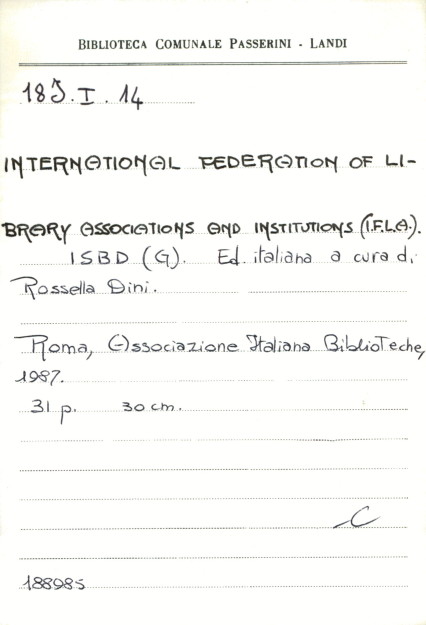 BIBLIOTECA COMUNALE PASSERINI - LANDI
18J.I.14
INTERNATIONAL FEDERATION OF LI-
BRARY ASSOCIATIONS AND INSTITUTIONS (I.F.L.A.).
ISBD (G). Ed. italiana a cura di
Rossella Dini.
Roma, Associazione Italiana Biblioteche,
1987.
31 p. 30 cm.
C
188985